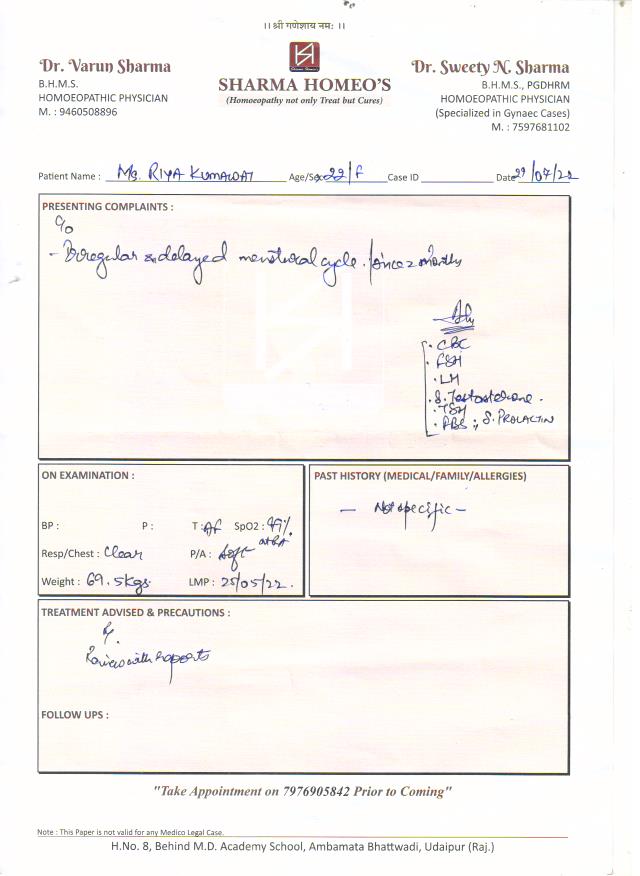 ।। श्री गणेशाय नमः ।।
Dr. Varun Sharma
B.H.M.S.
HOMOEOPATHIC PHYSICIAN
M. : 9460508896
SHARMA HOMEO'S
(Homoeopathy not only Treat but Cures)
Dr. Sweety N. Sharma
B.H.M.S., PGDHRM
HOMOEOPATHIC PHYSICIAN
(Specialized in Gynaec Cases)
M. : 7597681102
Patient Name : Ms. RIYA KUMAWAT Age/Sex 22/F Case ID Date 29/07/22
PRESENTING COMPLAINTS :
C/o
- Irregular & delayed menstrual cycle. / since 2 months
Adv
. CBC
. FSH
. LH
. S. Testosterone.
. TSH
. RBS ; S. PROLACTIN
ON EXAMINATION :
BP : P : T : AF SpO2 : 99%.
Resp/Chest : Clear P/A : Soft
Weight : 69.5kgs LMP : 25/05/22.
PAST HISTORY (MEDICAL/FAMILY/ALLERGIES)
- Not specific -
TREATMENT ADVISED & PRECAUTIONS :
Rx.
Review with Reports
FOLLOW UPS :
"Take Appointment on 7976905842 Prior to Coming"
Note : This Paper is not valid for any Medico Legal Case.
H.No. 8, Behind M.D. Academy School, Ambamata Bhattwadi, Udaipur (Raj.)